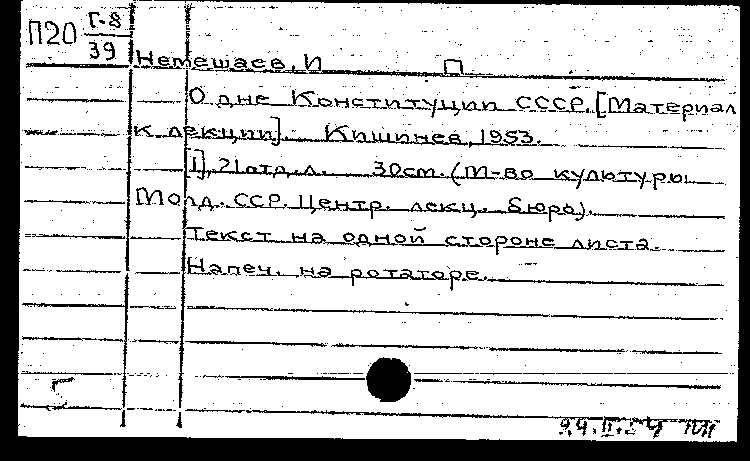 П20 Г-8
39
Немешаев, И П
О дне Конституции СССР. [Материал
к лекции]. Кишинев, 1953.
[1], 21 отд. л. 30см. (М-во культуры
Молд. ССР. Центр. лекц. бюро).
Текст на одной стороне листа.
Напеч. на ротаторе.
5